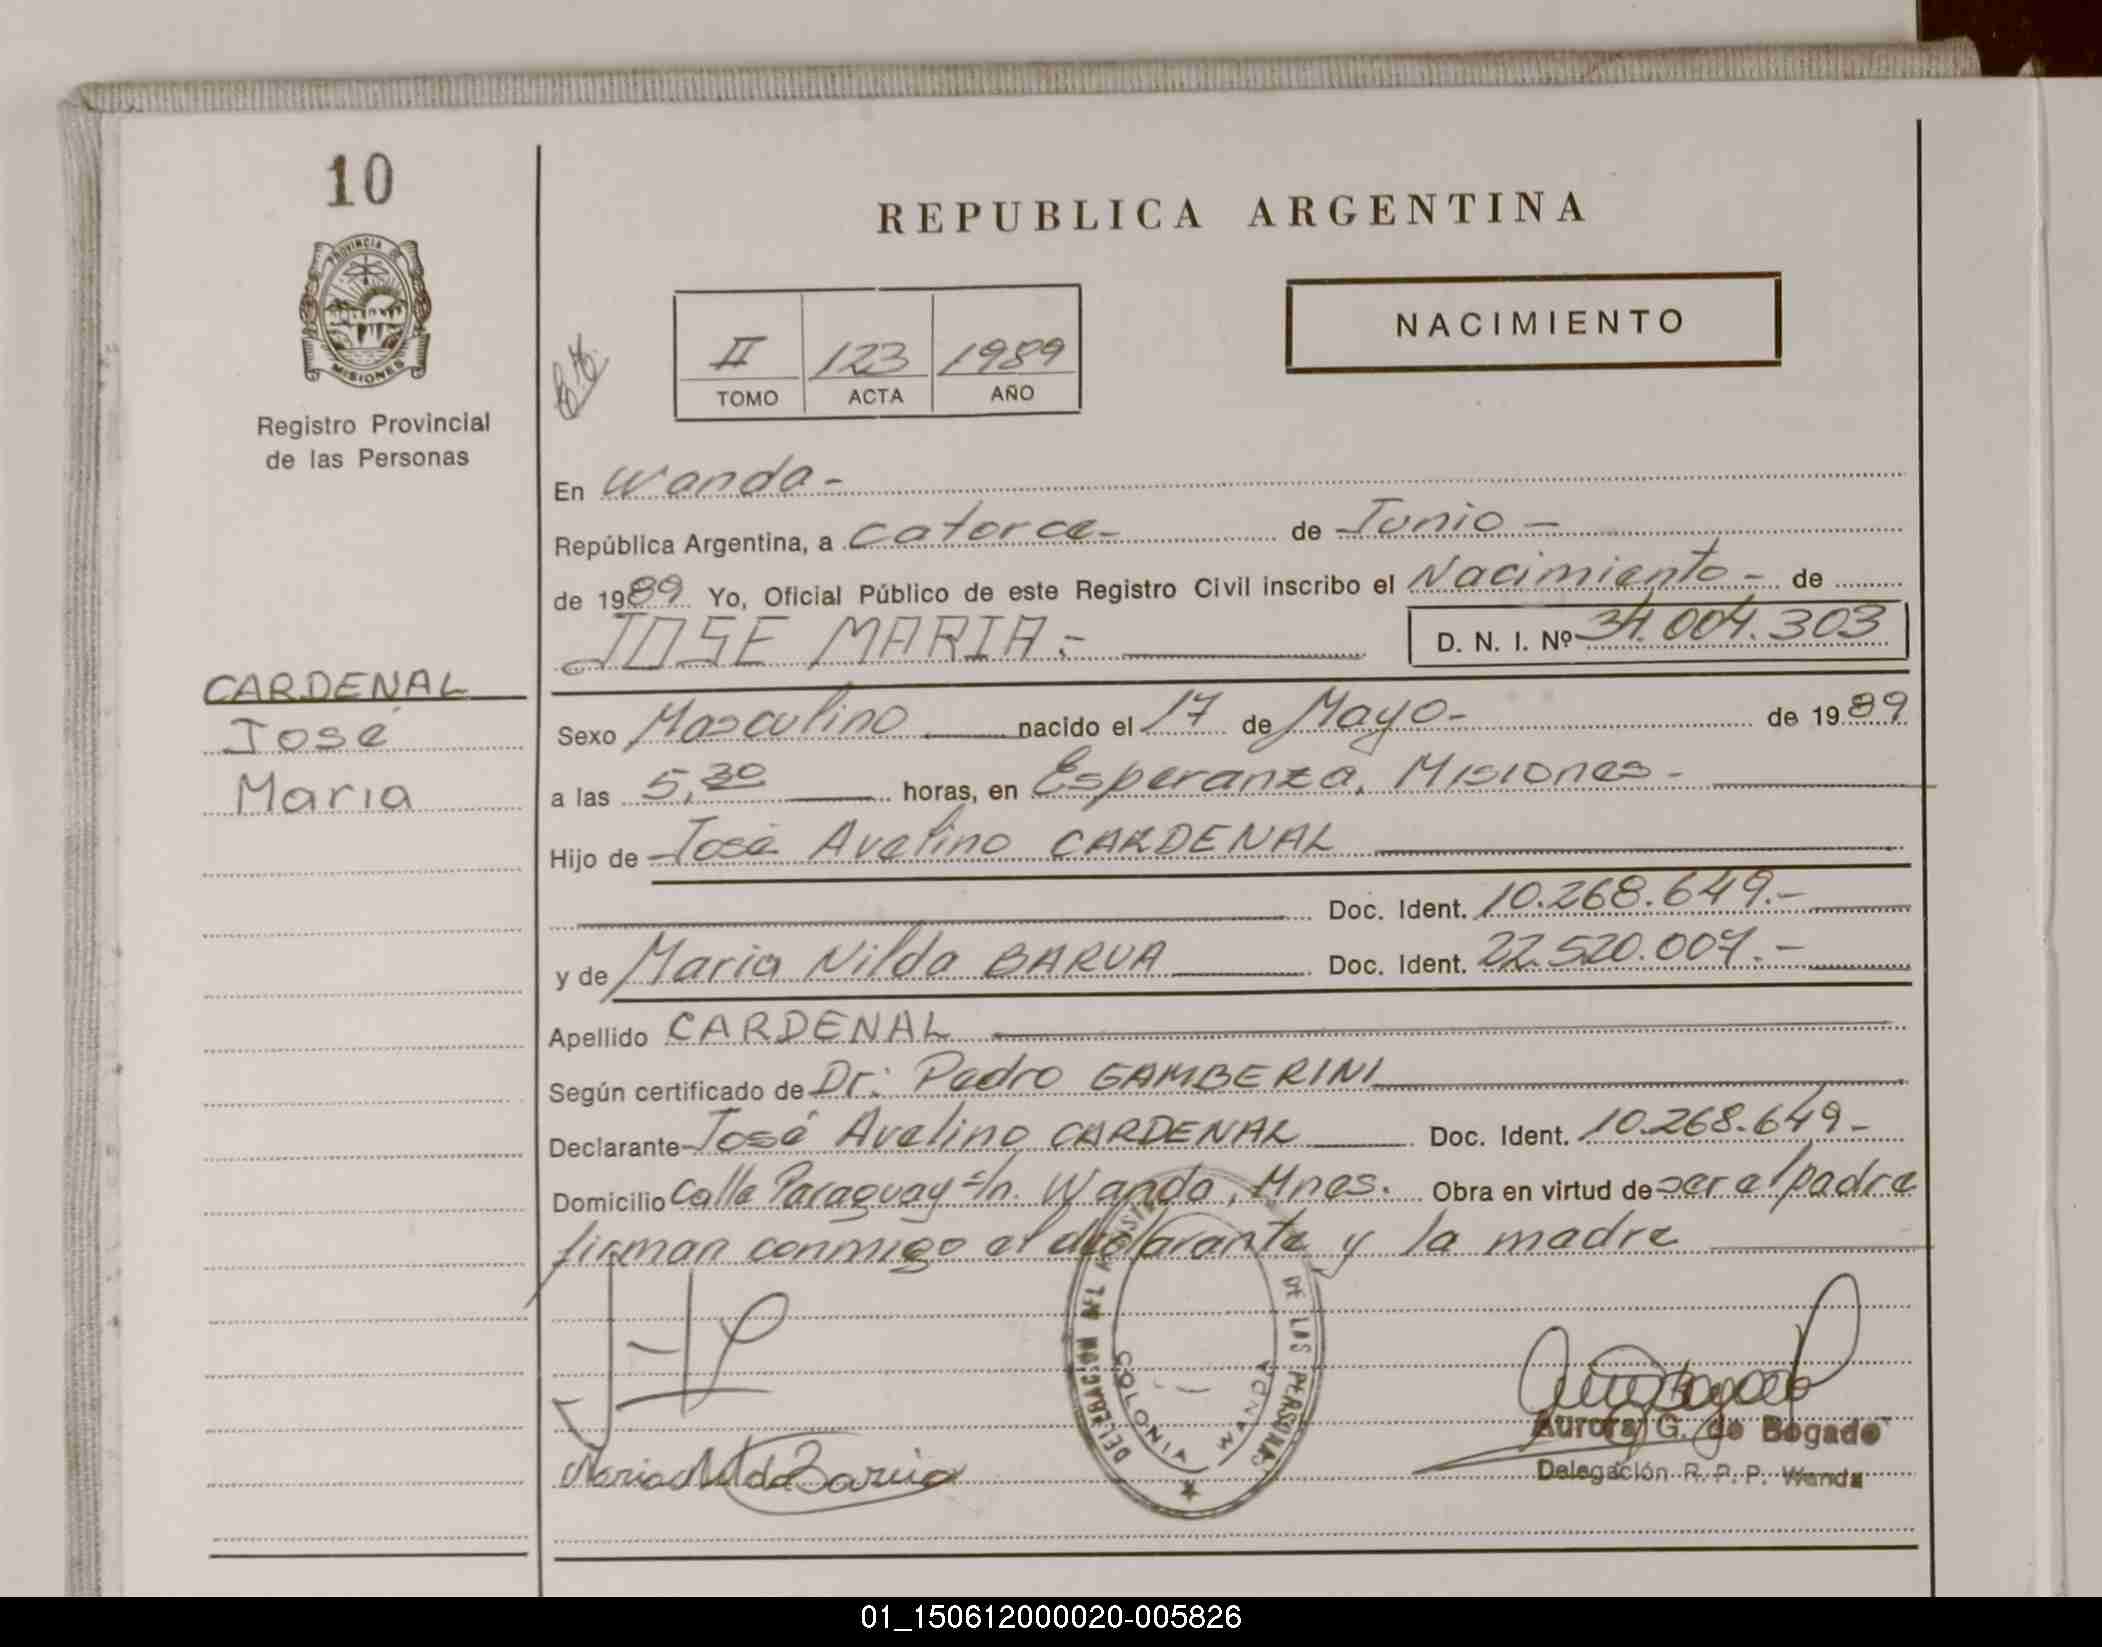 10
PROVINCIA
MISIONES
Registro Provincial
de las Personas
REPUBLICA ARGENTINA
II 123 1989
TOMO ACTA AÑO
NACIMIENTO
En Wanda-
República Argentina, a catorce- de Junio-
de 1989 Yo, Oficial Público de este Registro Civil inscribo el Nacimiento- de
JOSE MARIA.- D. N. I. Nº 34.004.303
CARDENAL
José
Maria
Sexo Masculino nacido el 17 de Mayo- de 1989
a las 5,30 horas, en Esperanza, Misiones-
Hijo de José Avelino CARDENAL
Doc. Ident. 10.268.649.-
y de Maria Nilda BARUA Doc. Ident. 22.520.007.-
Apellido CARDENAL
Según certificado de Dr: Pedro GAMBERINI
Declarante José Avelino CARDENAL Doc. Ident. 10.268.649-
Domicilio Calle Paraguay s/n. Wanda, Mnes. Obra en virtud de ser el padre
firman conmigo el declarante y la madre
DELEGACION DEL DE LAS PERSONAS
COLONIA WANDA
Maria Nilda Barua
Aurora G. de Bogado
Delegación R. P. P. Wanda
01_150612000020-005826